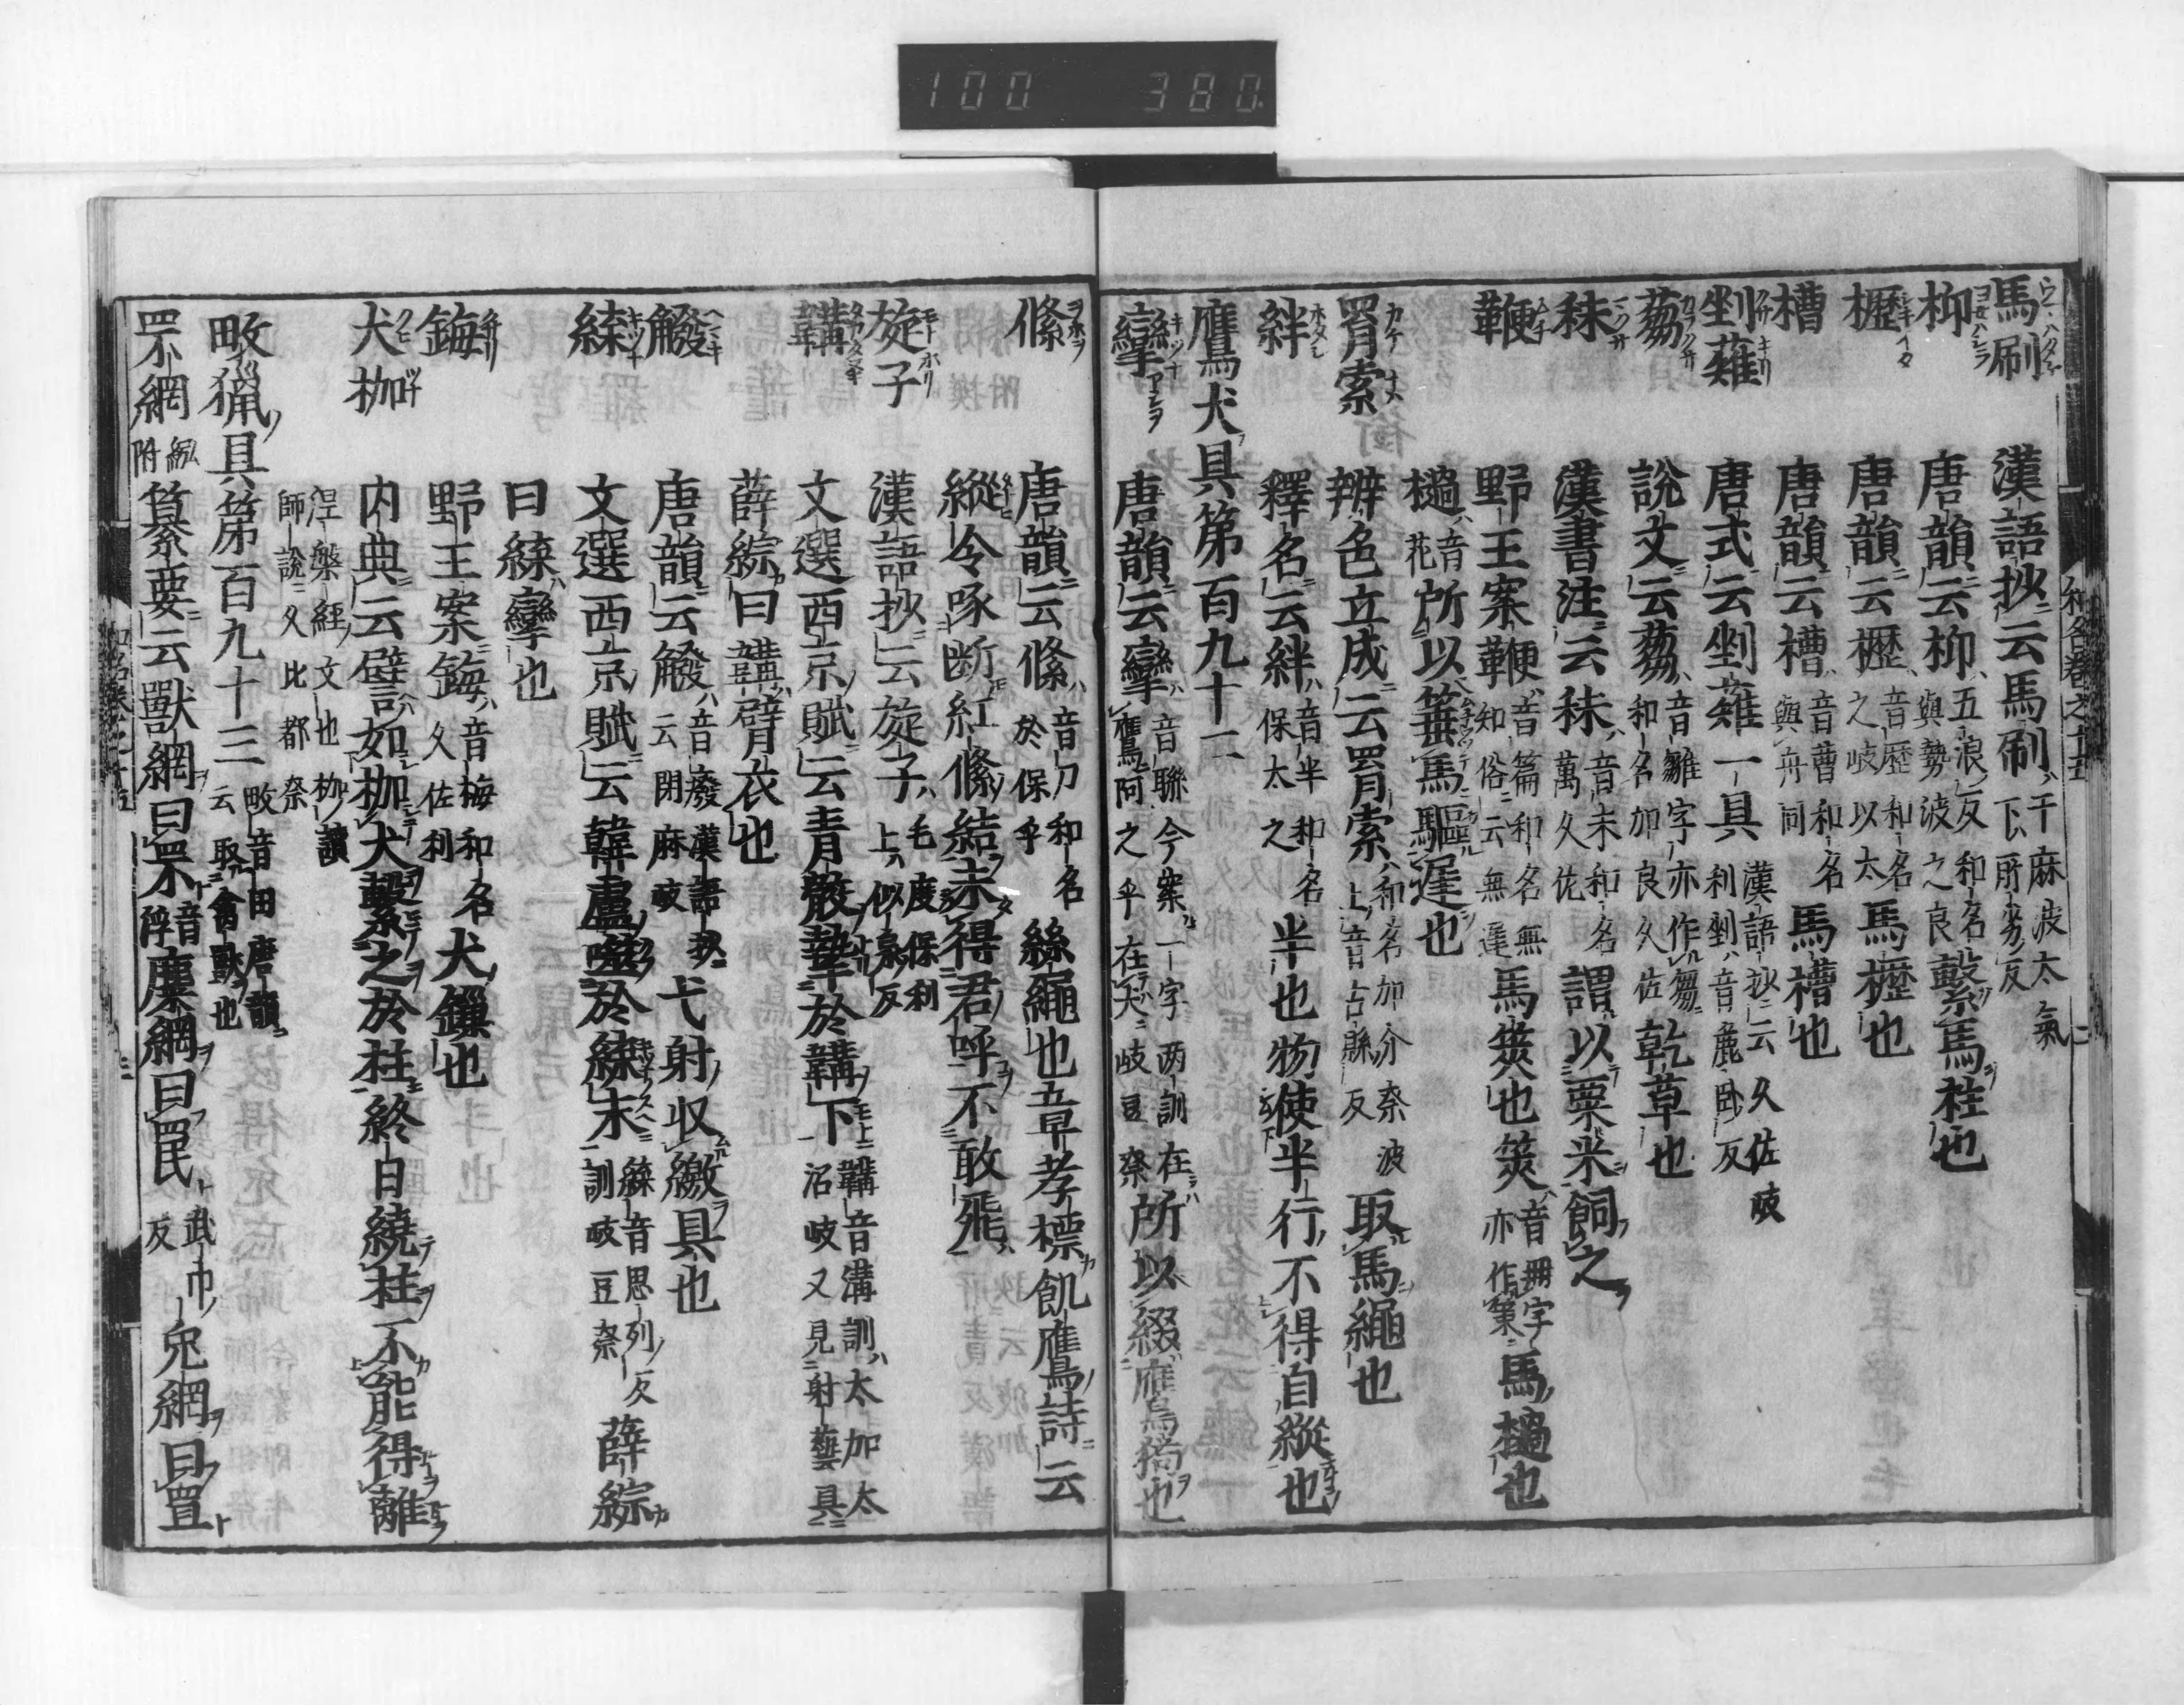 100 380
馬刷 漢語抄云馬刷 于麻波太氣 下所劣反
枊 唐韻云枊 五浪反 和名 與勢波之良 繋馬柱也
櫪 唐韻云櫪 音歴 和名 之岐以太 馬櫪也
槽 唐韻云槽 音曹 和名 與舟同 馬槽也
剉薙 唐式云剉薙一具 漢語抄云 久佐岐利 剉音麁臥反
蒭 説文云蒭 音雛 字亦作芻 和名 加良久佐 乾草也
秣 漢書注云秣 音末 和名 萬久佐 謂以粟米飼之
鞭 野王案鞭 音篇 和名無知 俗云無遲 馬䇲也 筴 音冊 字亦作策 馬檛也
檛 音花 所以箠馬驅遲也
罥索 辨色立成云罥索 和名 加介奈波 上音古縣反 取馬繩也
絆 釋名云絆 音半 和名 保太之 半也物使半行不得自縱也
鷹犬具第百九十二
攣 唐韻云攣 音聯 今案一字两訓 在鷹 阿之乎 在犬 岐豆奈 所以綴鷹狗也
和名卷之十五 二
絛 唐韻云絛 音刀 和名 於保乎 絲繩也章孝標飢鷹詩云
縱令啄断紅絛結未得君呼不敢飛
旋子 漢語抄云旋子 毛度保利 上似泉反
韝 文選西京賦云青骹摯於韝下 韝音溝 訓太加太沼岐 又見射藝具
薛綜曰韝臂衣也
䌵 唐韻云 音廢 漢語抄云 閉麻岐 弋射収繳具也
緤 文選西京賦云韓盧噬於緤末 緤音思列反 訓岐豆奈 薛綜
曰緤攣也
鋂 野王案鋂 音梅 和名 久佐利 犬鏁也
犬枷 内典云譬如枷犬繋之於柱終日繞柱不能得離
涅槃經文也 枷讀師説 久比都奈
畋猟具第百九十三 畋音田 唐韻云 取禽獸也
罘網 纂要云獸網曰罘 音浮 麋網曰罠 武巾反 兎網曰罝